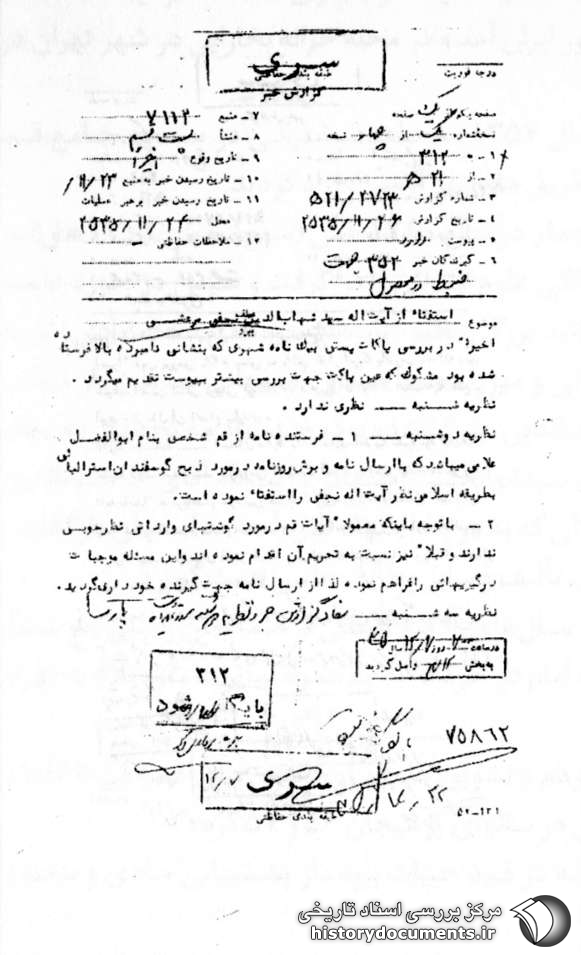 سری
طبقه بندی حفاظتی
درجه فوریت
گزارش خبر
صفحه یک از یک صفحه
نسخه شماره یک از چهار نسخه
۱ - به ۳۱۲
۲ - از ۵۲۱
۳ - شماره گزارش ۵۲۱/۲۷۲۳
۴ - تاریخ گزارش ۲۵۳۵/۱۱/۲۶
۵ - پیوست دارد
۶ - گیرندگان خبر ۳۵۲ جهت
ضبط در محل
۷ - منبع ۷۱۱۲
۸ - منشأ
۹ - تاریخ وقوع اخیرا
۱۰ - تاریخ رسیدن خبر به منبع ۱۱/۲۳
۱۱ - تاریخ رسیدن خبر برهبر عملیات
محل ۲۵۳۵/۱۱/۲۴
۱۲ - ملاحظات حفاظتی
موضوع استفتاء از آیت اله سید شهاب الدین نجفی مرعشی
اخیراً در بررسی پاکات پستی بیک نامه شهری که بنشانی نامبرده بالا فرستاده
شده بود مشکوک که عین پاکت جهت بررسی بیشتر بپیوست تقدیم میگردد .
نظریه شنبه ــ نظری ندارد .
نظریه دوشنبه ــ ۱ - فرستنده نامه از قم شخصی بنام ابوالفضل
علامی میباشد که با ارسال نامه و برش روزنامه در مورد ذبح گوسفندان استرالیائی
بطریقه اسلامی نظر آیت اله نجفی را استفتاء نموده است .
۲ - با توجه باینکه معمولاً آیات قم در مورد گوشتهای وارداتی نظر خوبی
ندارند و قبلاً نیز نسبت به تحریم آن اقدام نموده اند و این مسئله موجبات
درگیریهائی را فراهم نموده لذا از ارسال نامه جهت گیرنده خودداری گردید .
نظریه سه شنبه ــ مفاد گزارش پارسا
در ساعت روز ۷/۱۲ سال ۳۵
به بخش ۳۱۲ واصل گردید
۳۱۲
بایگانی شود
۷۵۸۶۲
سری
۱۲/۷
طبقه بندی حفاظتی
۱۲/۲۲
۵۲-۱۲۱
مرکز بررسی اسناد تاریخی
historydocuments.ir